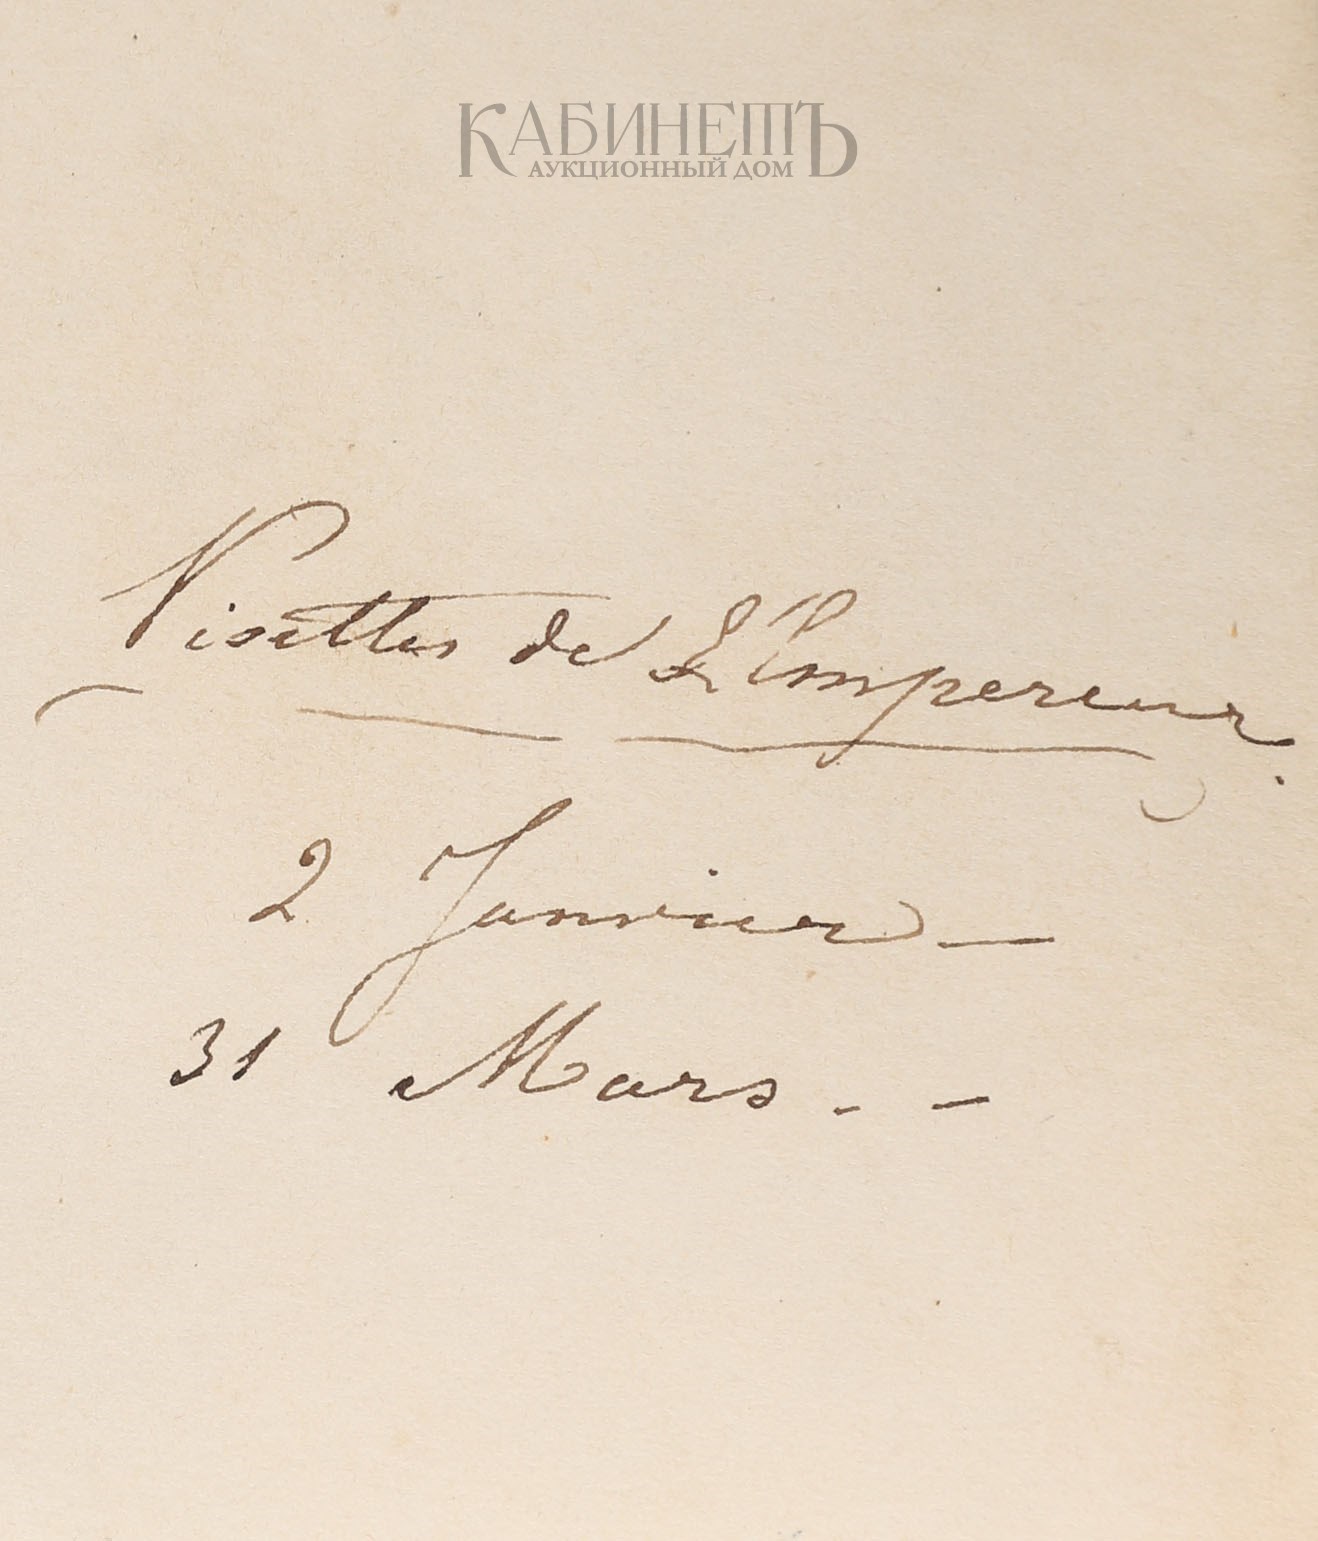 КАБИНЕТЪ
АУКЦИОННЫЙ ДОМ
Visettes de L'Empereur.
2 Janvier —
31 Mars. -